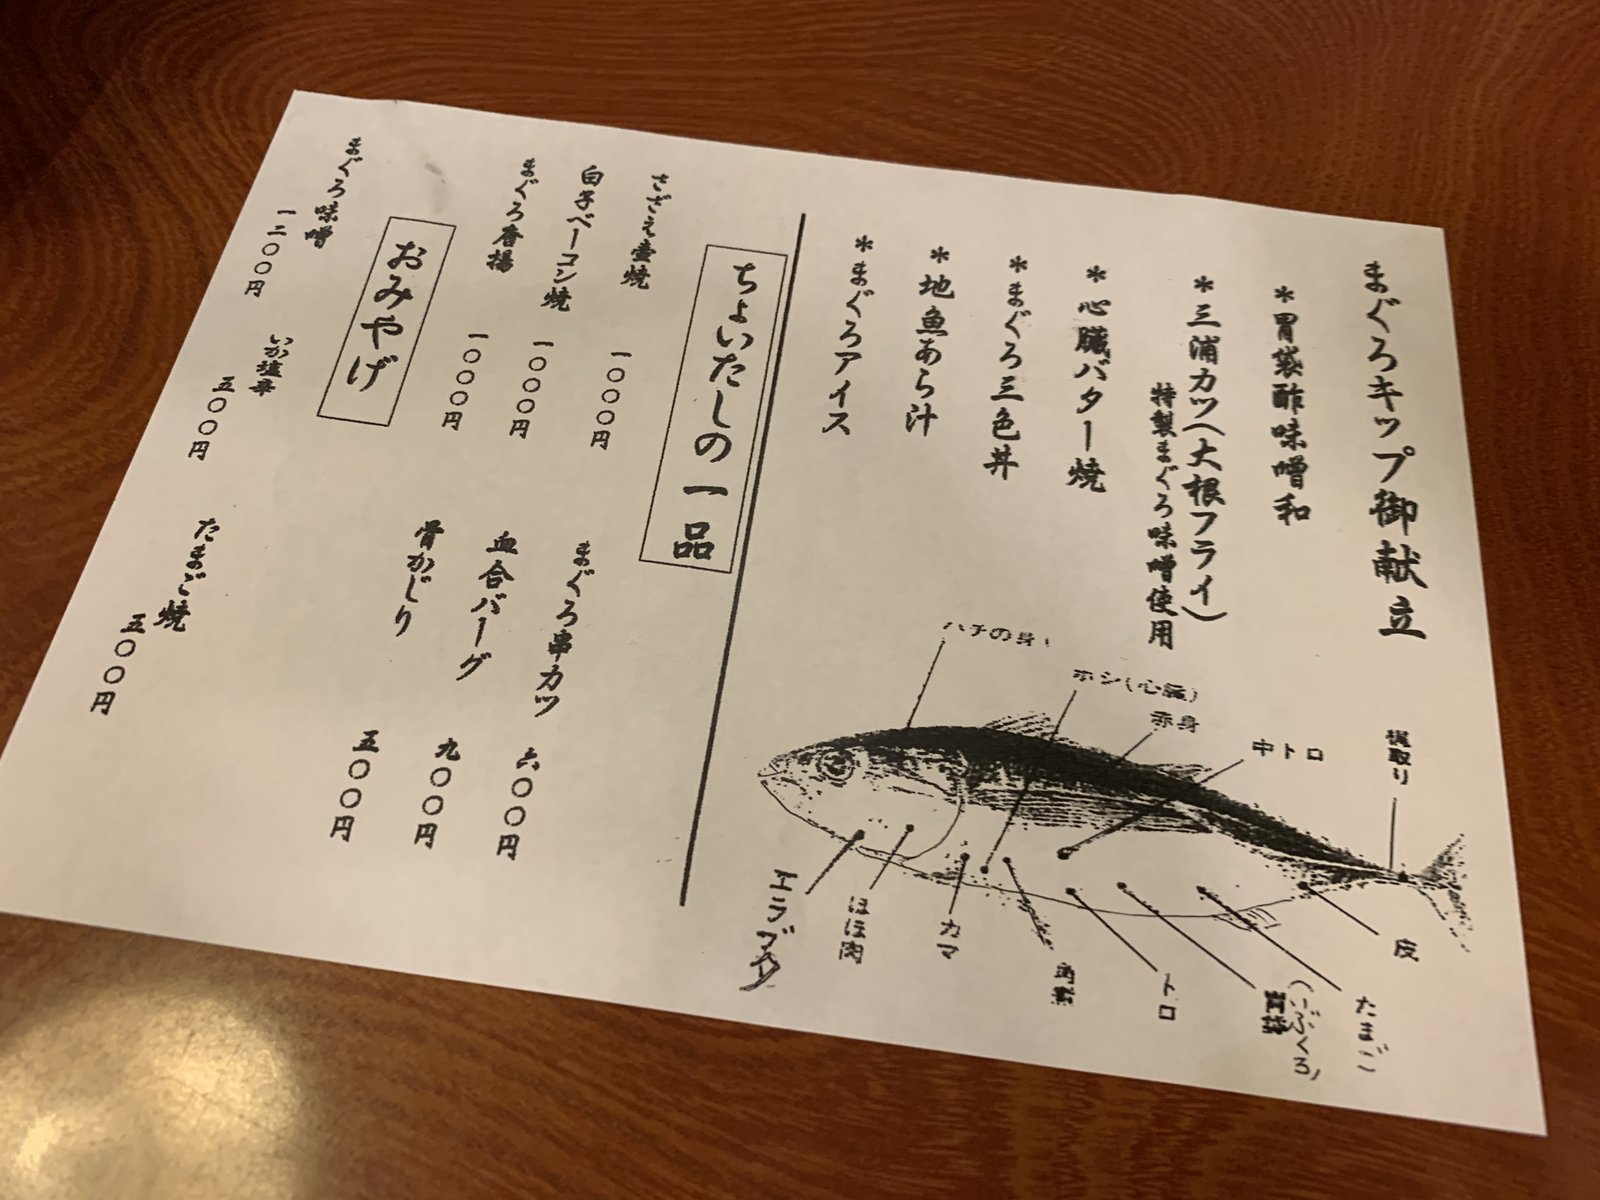 まぐろキップ御献立
＊胃袋酢味噌和
＊三浦カツ(大根フライ)
特製まぐろ味噌使用
＊心臓バター焼
＊まぐろ三色丼
＊地魚あら汁
＊まぐろアイス
ハチの身
ホシ(心臓)
赤身
中トロ
梶取り
エラブタ
ほほ肉
カマ
トロ
(いぶくろ)
たまご
皮
ちょいたしの一品
さざえ壷焼 一〇〇〇円
白子ベーコン焼 一〇〇〇円
まぐろ唐揚 一〇〇〇円
まぐろ串カツ 六〇〇円
血合バーグ 九〇〇円
骨かじり 五〇〇円
おみやげ
まぐろ味噌 一二〇〇円
いか塩辛 五〇〇円
たまご焼 五〇〇円